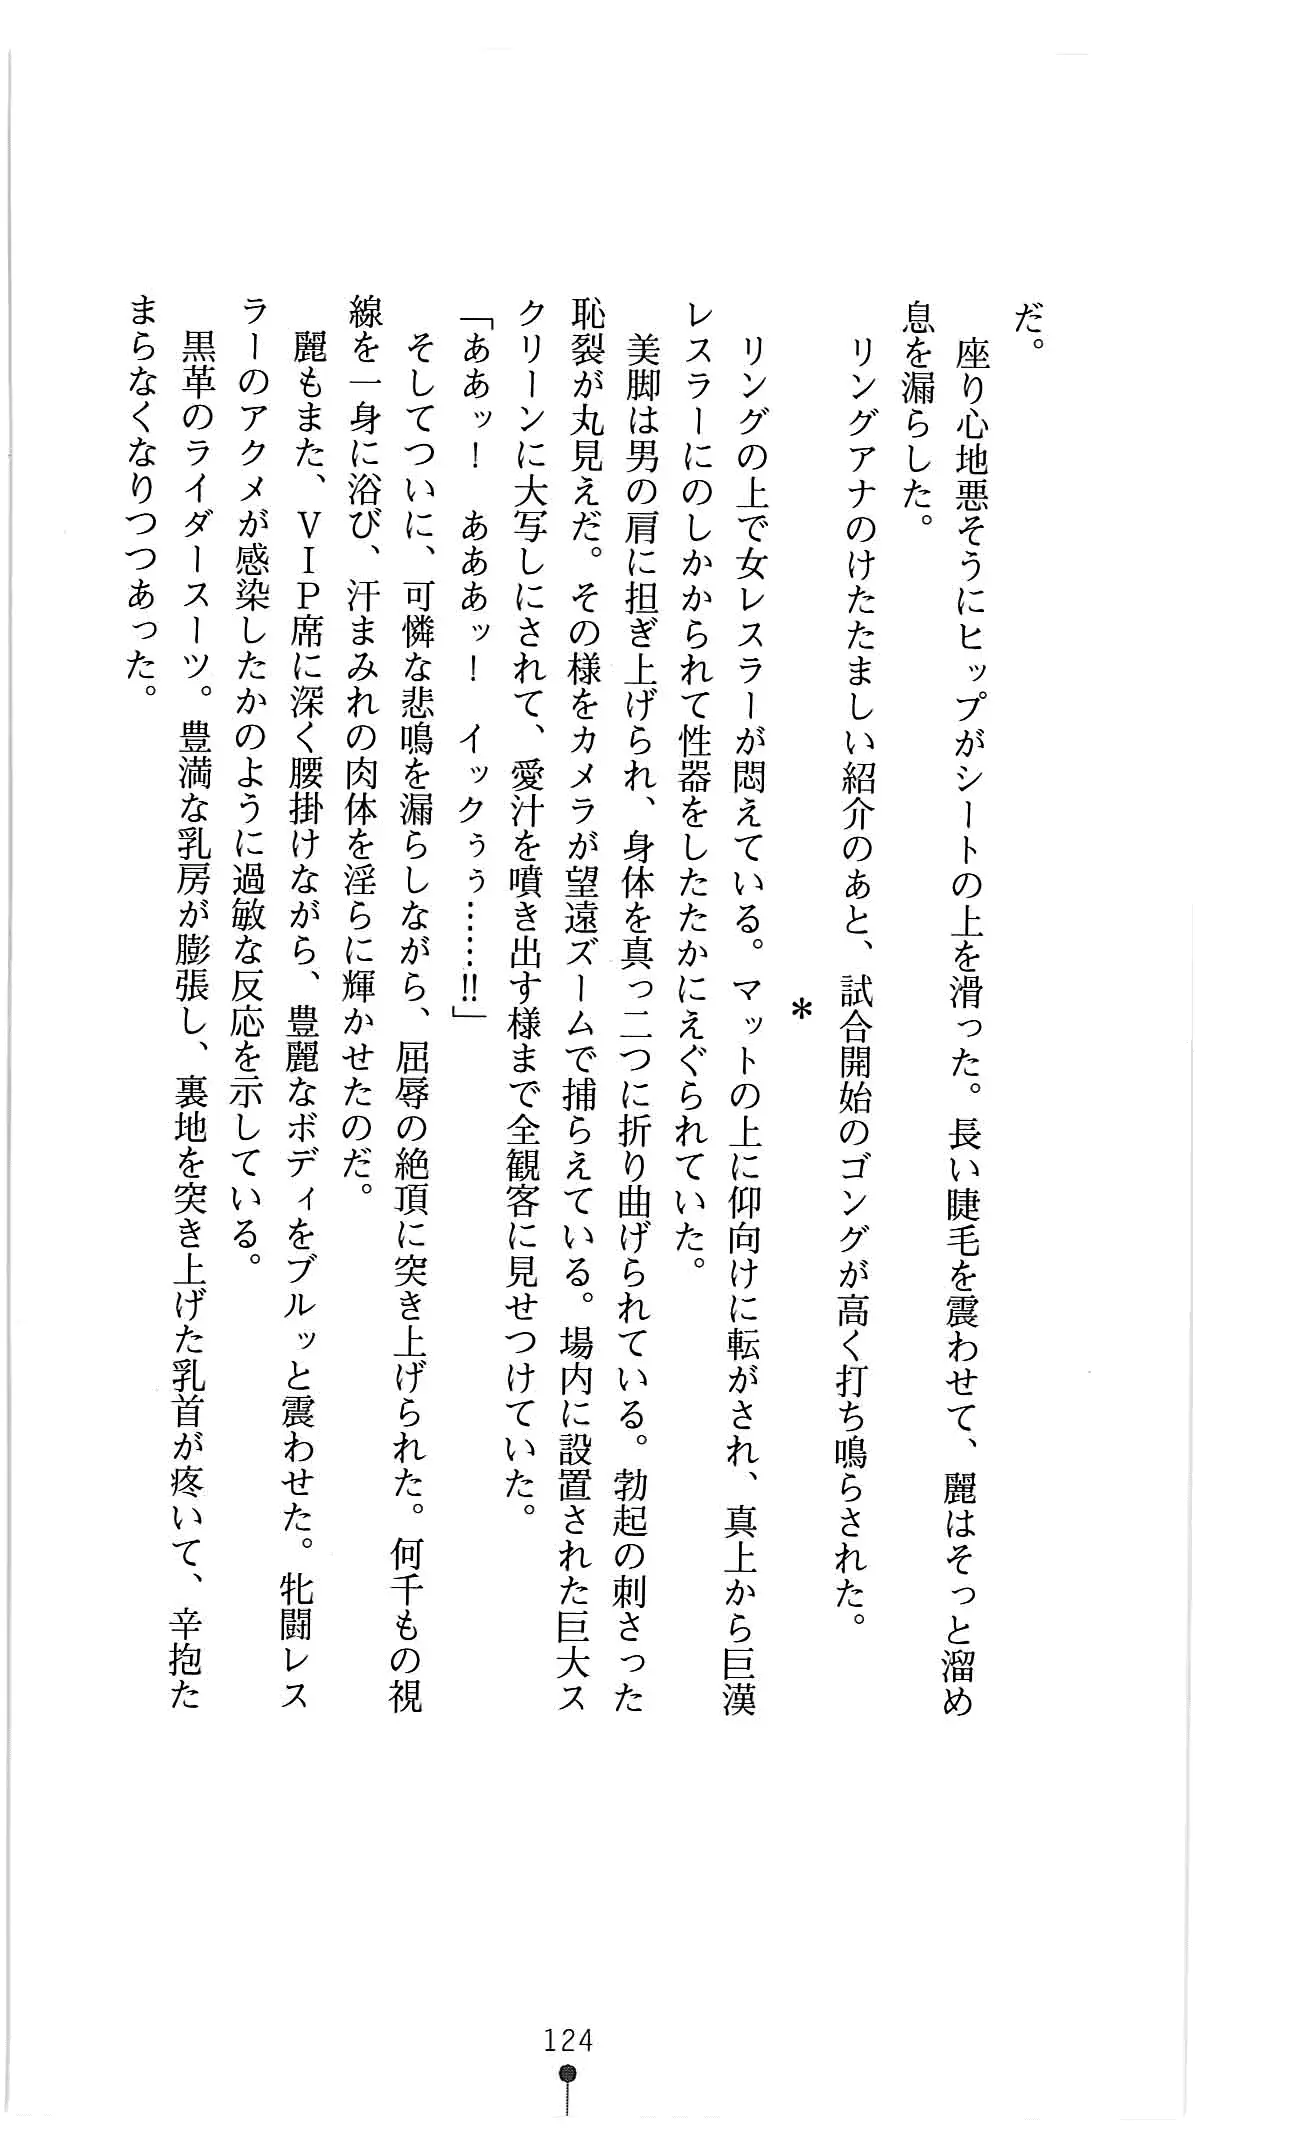 だ。
　座り心地悪そうにヒップがシートの上を滑った。長い睫毛を震わせて、麗はそっと溜め
息を漏らした。
　リングアナのけたたましい紹介のあと、試合開始のゴングが高く打ち鳴らされた。
＊
　リングの上で女レスラーが悶えている。マットの上に仰向けに転がされ、真上から巨漢
レスラーにのしかかられて性器をしたたかにえぐられていた。
　美脚は男の肩に担ぎ上げられ、身体を真っ二つに折り曲げられている。勃起の刺さった
恥裂が丸見えだ。その様をカメラが望遠ズームで捕らえている。場内に設置された巨大ス
クリーンに大写しにされて、愛汁を噴き出す様まで全観客に見せつけていた。
「ああッ！　あああッ！　イックぅぅ……‼」
　そしてついに、可憐な悲鳴を漏らしながら、屈辱の絶頂に突き上げられた。何千もの視
線を一身に浴び、汗まみれの肉体を淫らに輝かせたのだ。
　麗もまた、ＶＩＰ席に深く腰掛けながら、豊麗なボディをブルッと震わせた。牝闘レス
ラーのアクメが感染したかのように過敏な反応を示している。
　黒革のライダースーツ。豊満な乳房が膨張し、裏地を突き上げた乳首が疼いて、辛抱た
まらなくなりつつあった。
124